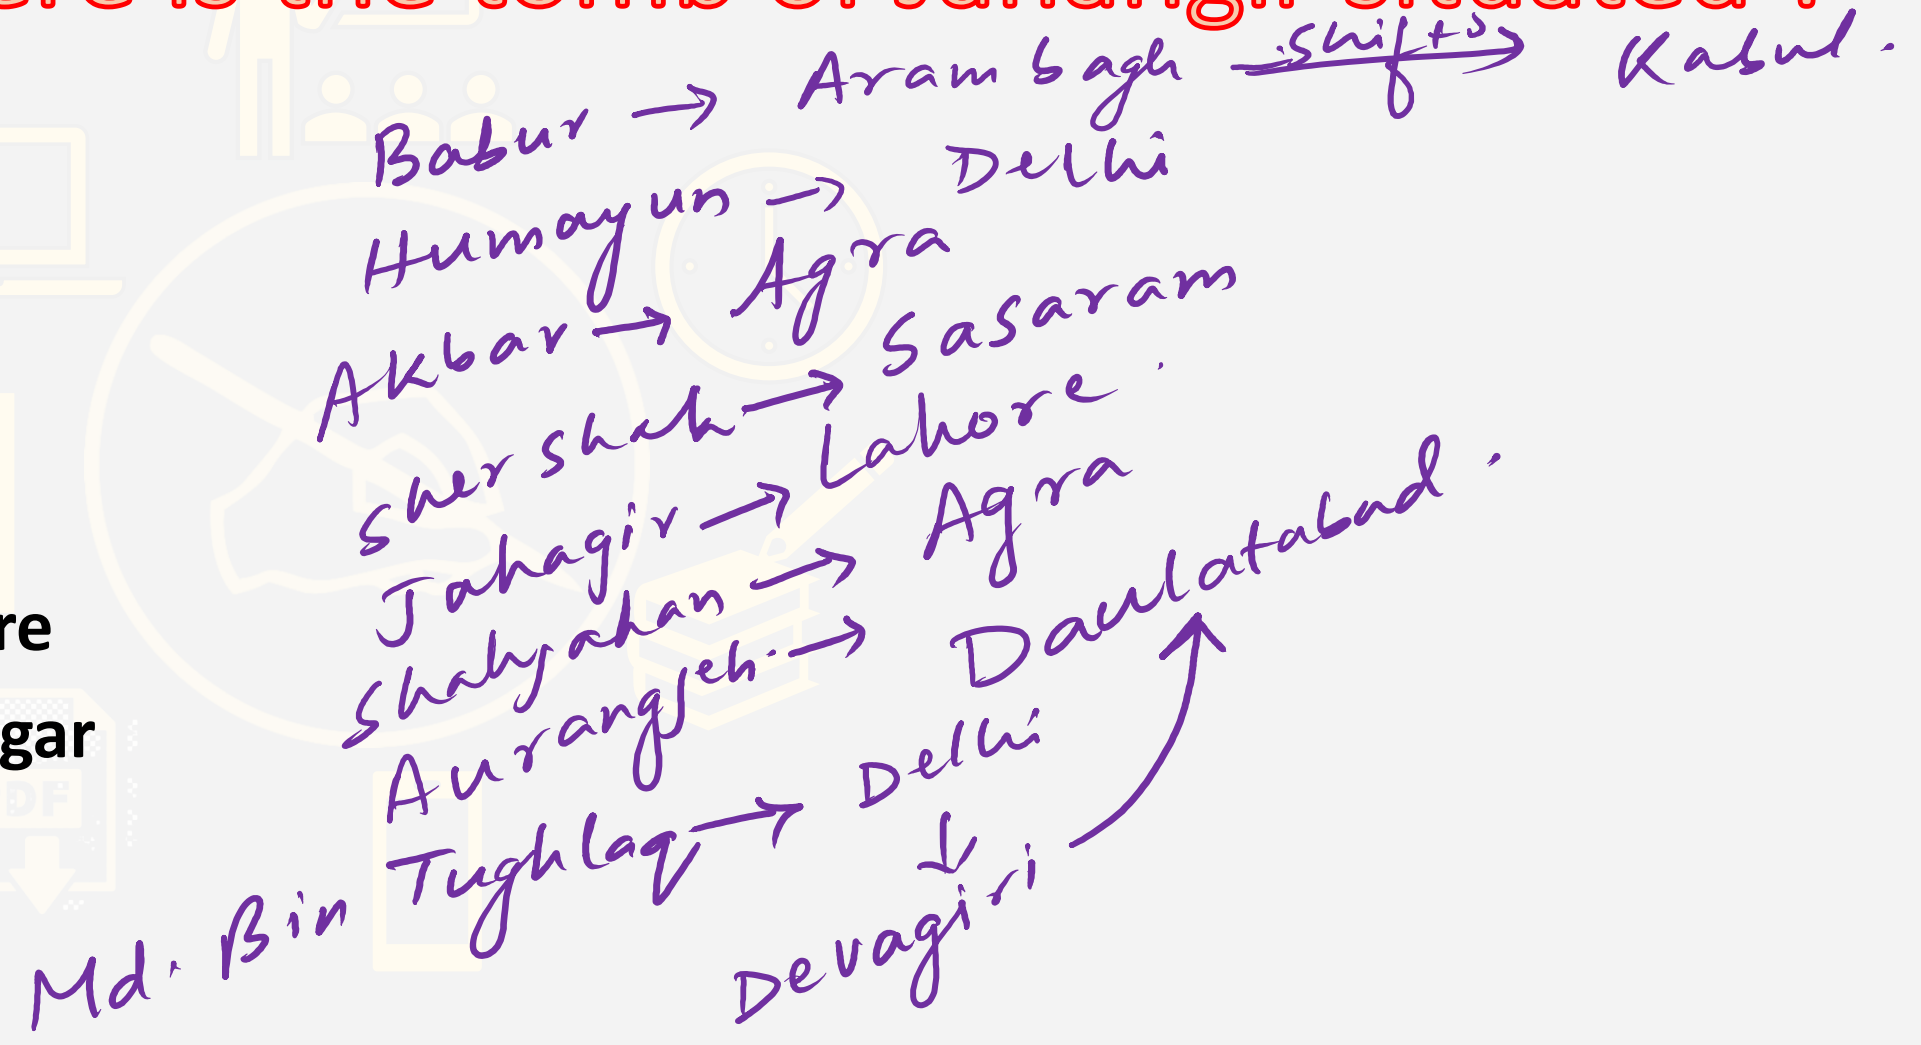 ere is the tomb of Jahangir situated ?
Babur → Aram bagh shifts → Kabul.
Humayun → Delhi
Akbar → Agra
Sher shah → Sasaram
Jahagir → Lahore.
Shahjahan → Agra
Aurangjeb. → Daulatabad.
Md. Bin Tughlaq → Delhi
↓
Devagiri
re
gar
DF